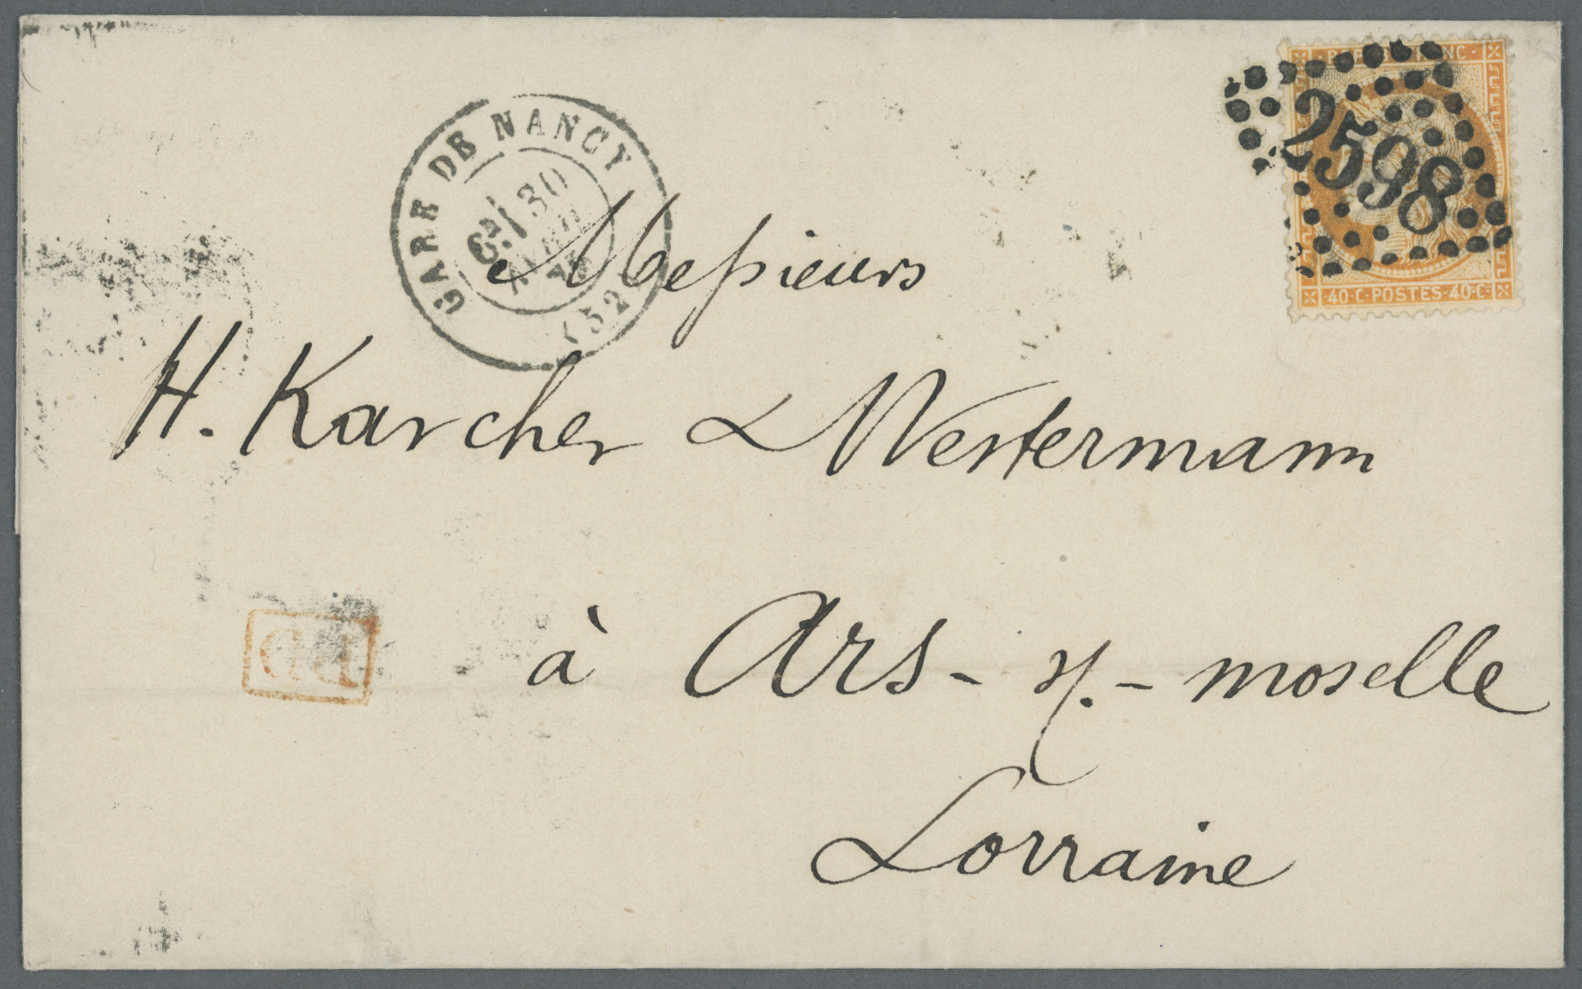 GARE DE NANCY
30
(52)
REPUB FRANC
2598
40·C·POSTES·40·C·
Messieurs
H. Karcher & Westermann
à Ars-s/.-moselle
Lorraine
PD